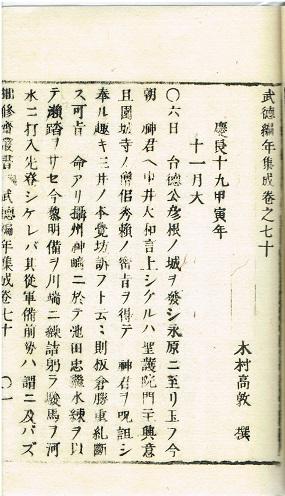 武德編年集成卷之七十
木村高敦 撰
慶長十九甲寅年
十一月大
〇六日 台德公彦根ノ城ヲ發シ永原ニ至リ玉フ今
朝 神君ヘ中井大和言上シケルハ聖護院門主興意
且園城寺ノ僧侶秀賴ノ密旨ヲ得テ 神君ヲ呪詛シ
奉ル趣キ三井ノ本覺坊訴フト云々則板倉勝重糺斷
ス可肯 命アリ攝州神崎ニ於テ池田忠繼水練ヲ以
テ瀨踏ヲサセ今曉明備ヲ川端ニ繰詰躬ラ駿馬ヲ河
水ニ打入先登シケレバ其從軍備前勢ハ謂ニ及バズ
拙修齋叢書 武德編年集成卷七十 〇一